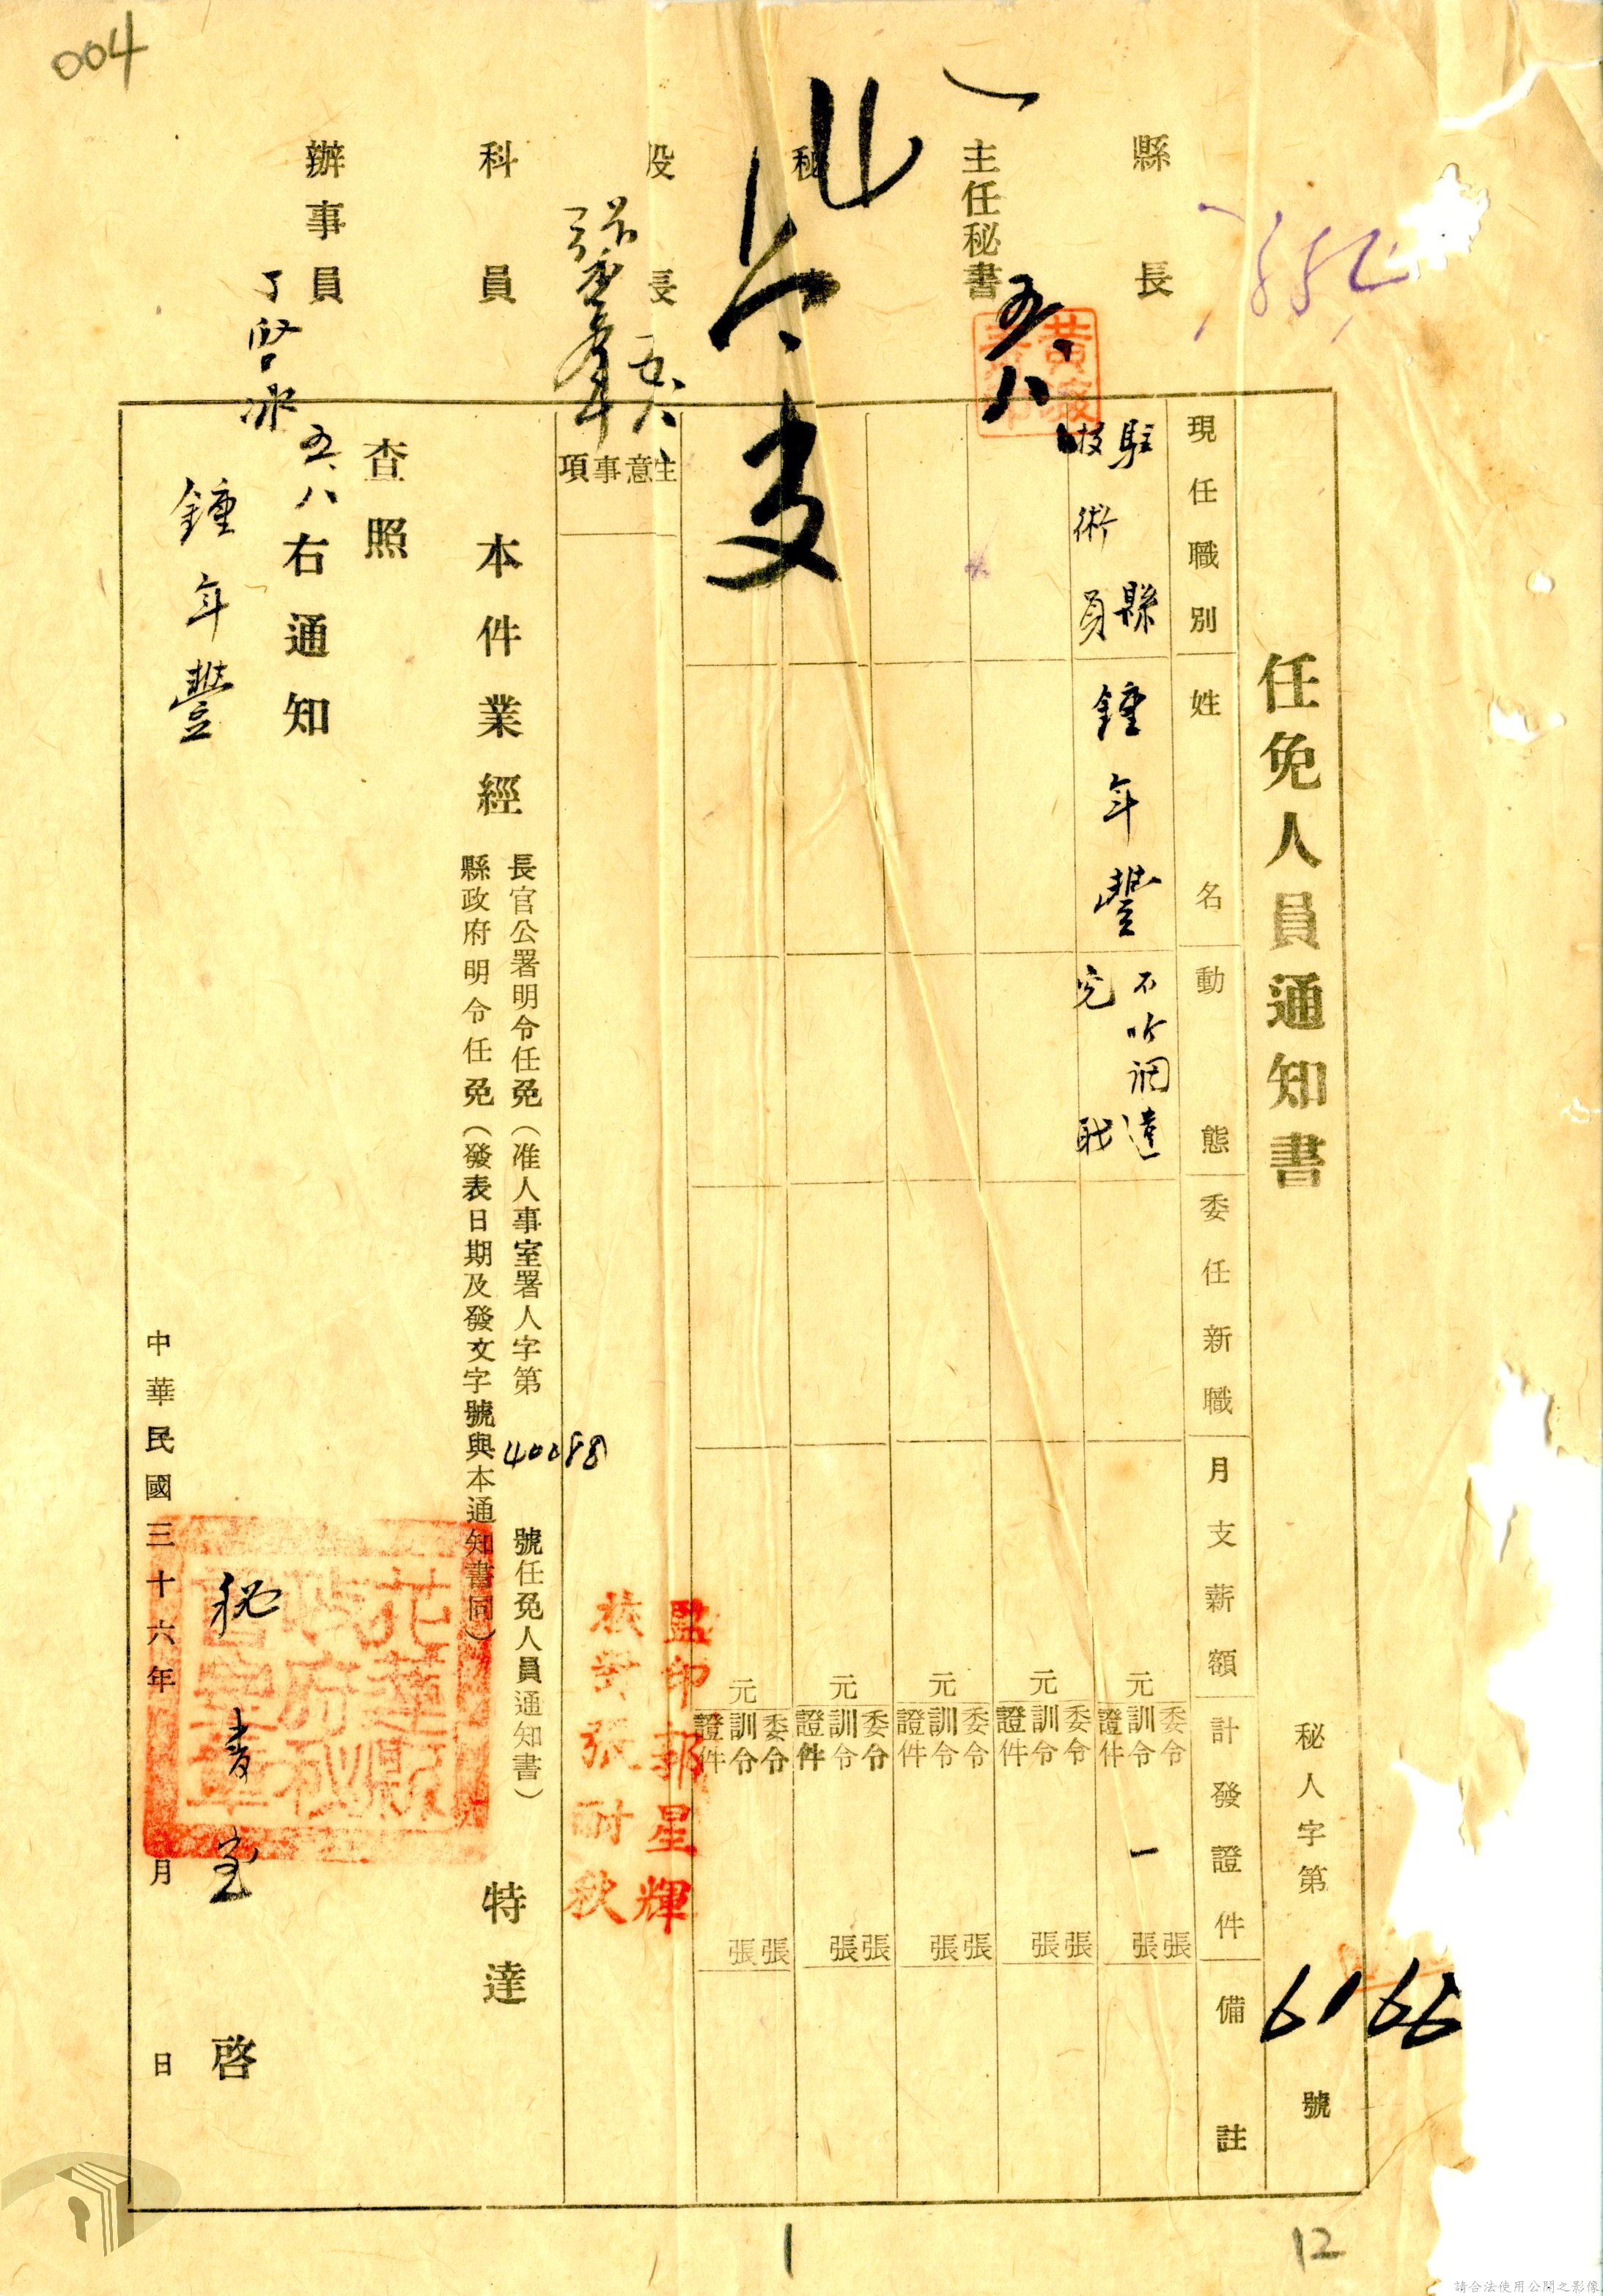 004
縣長
主任秘書
五、八
秘
股長
五、八、
科員
辦事員
丁
五、八
任免人員通知書
秘人字第6166號
現任職別
姓名
動態
委任新職
月支薪額
計發證件
備註
駐縣
技術員
鍾年豐
不听調遣
免職
元
委令 張
訓令 一 張
證件
元
委令 張
訓令 張
證件
元
委令 張
訓令 張
證件
元
委令 張
訓令 張
證件
元
委令 張
訓令 張
證件
注意事項
監印郭星輝
校對張耐秋
本件業經
長官公署明令任免(准人事室署人字第40098號任免人員通知書)
縣政府明令任免(發表日期及發文字號與本通知書同)
特達
查照
右通知
鍾年豐
秘書室 啓
中華民國三十六年 月 日
1
12
請合法使用公開之影像